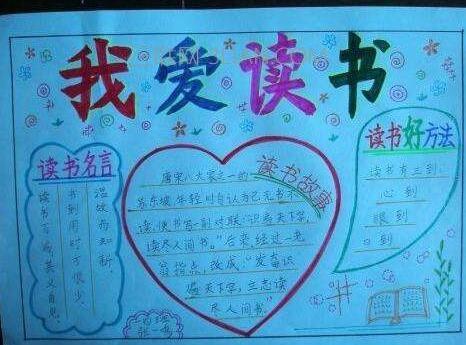 我爱读书
读书名言
温故而知新，
书到用时方恨少。
读书百遍，其义自见。
读书故事
唐宋八大家之一的
苏东坡年轻时自认为已无书不
读，便书写一副对联“识遍天下字，
读尽人间书。”后来经过一老
翁指点，改成，“发奋识
遍天下字，立志读
尽人间书”。
读书好方法
读书有三到：
心到
眼到
口到